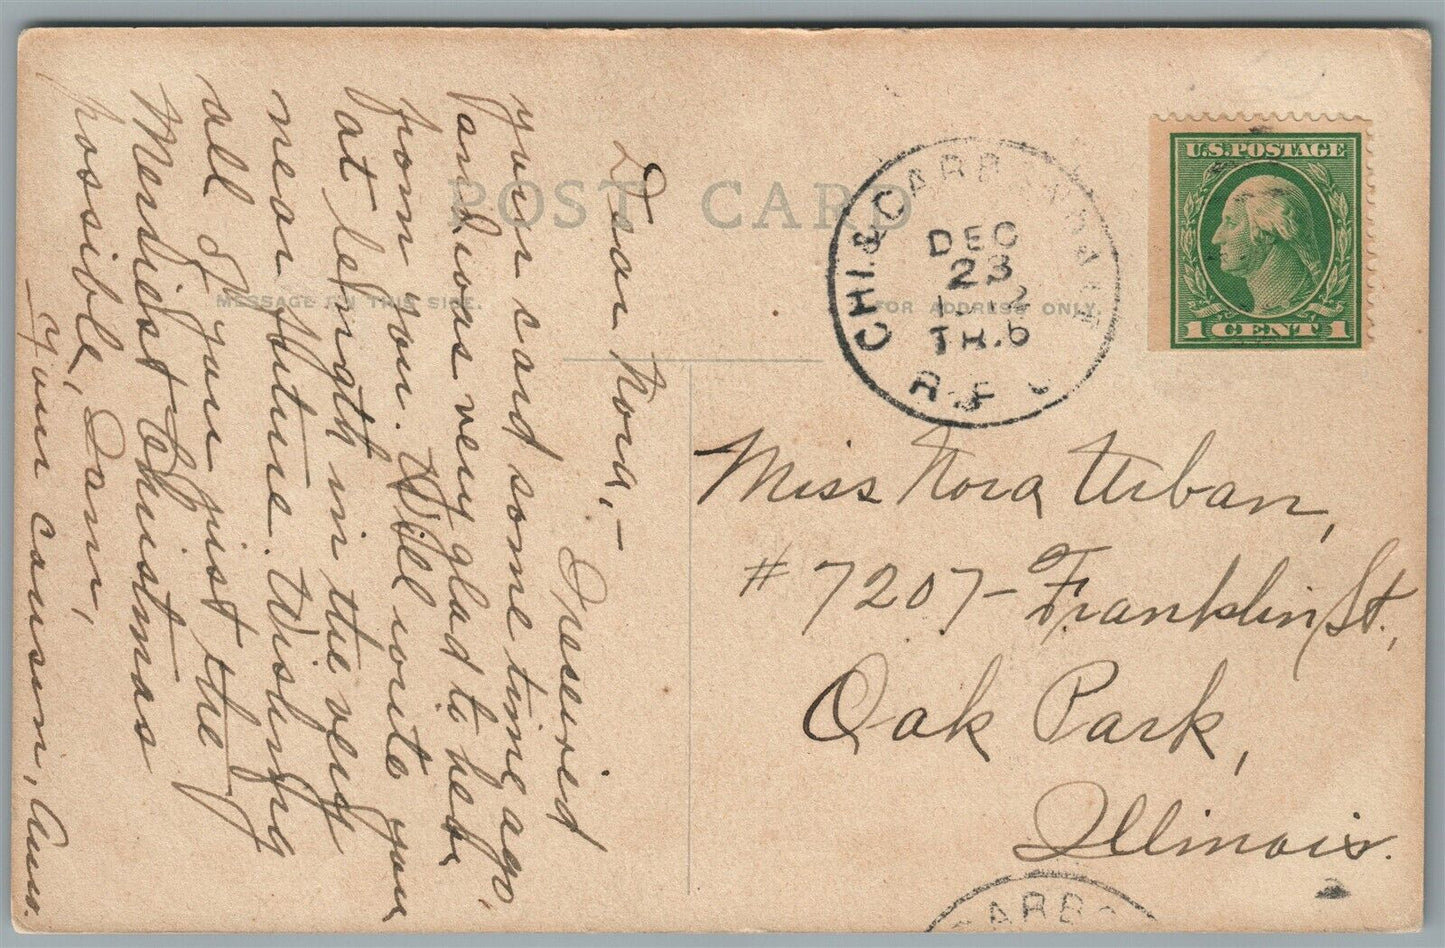 POST CARD
MESSAGE ON THIS SIDE.
FOR ADDRESS ONLY.
U.S. POSTAGE
1 CENT 1
CHI. & CARBONDALE
DEC
23
1912
TR.6
R.P.O.
Dear Nora,—
I received
your card some time ago,
and was very glad to hear
from you. Will write you
at length in the very
near future. Wishing
all of you just the
Merriest Christmas
possible, I am,
Your cousin,
Miss Nora Urban,
# 7207- Franklin St.,
Oak Park,
Illinois.
CARBO